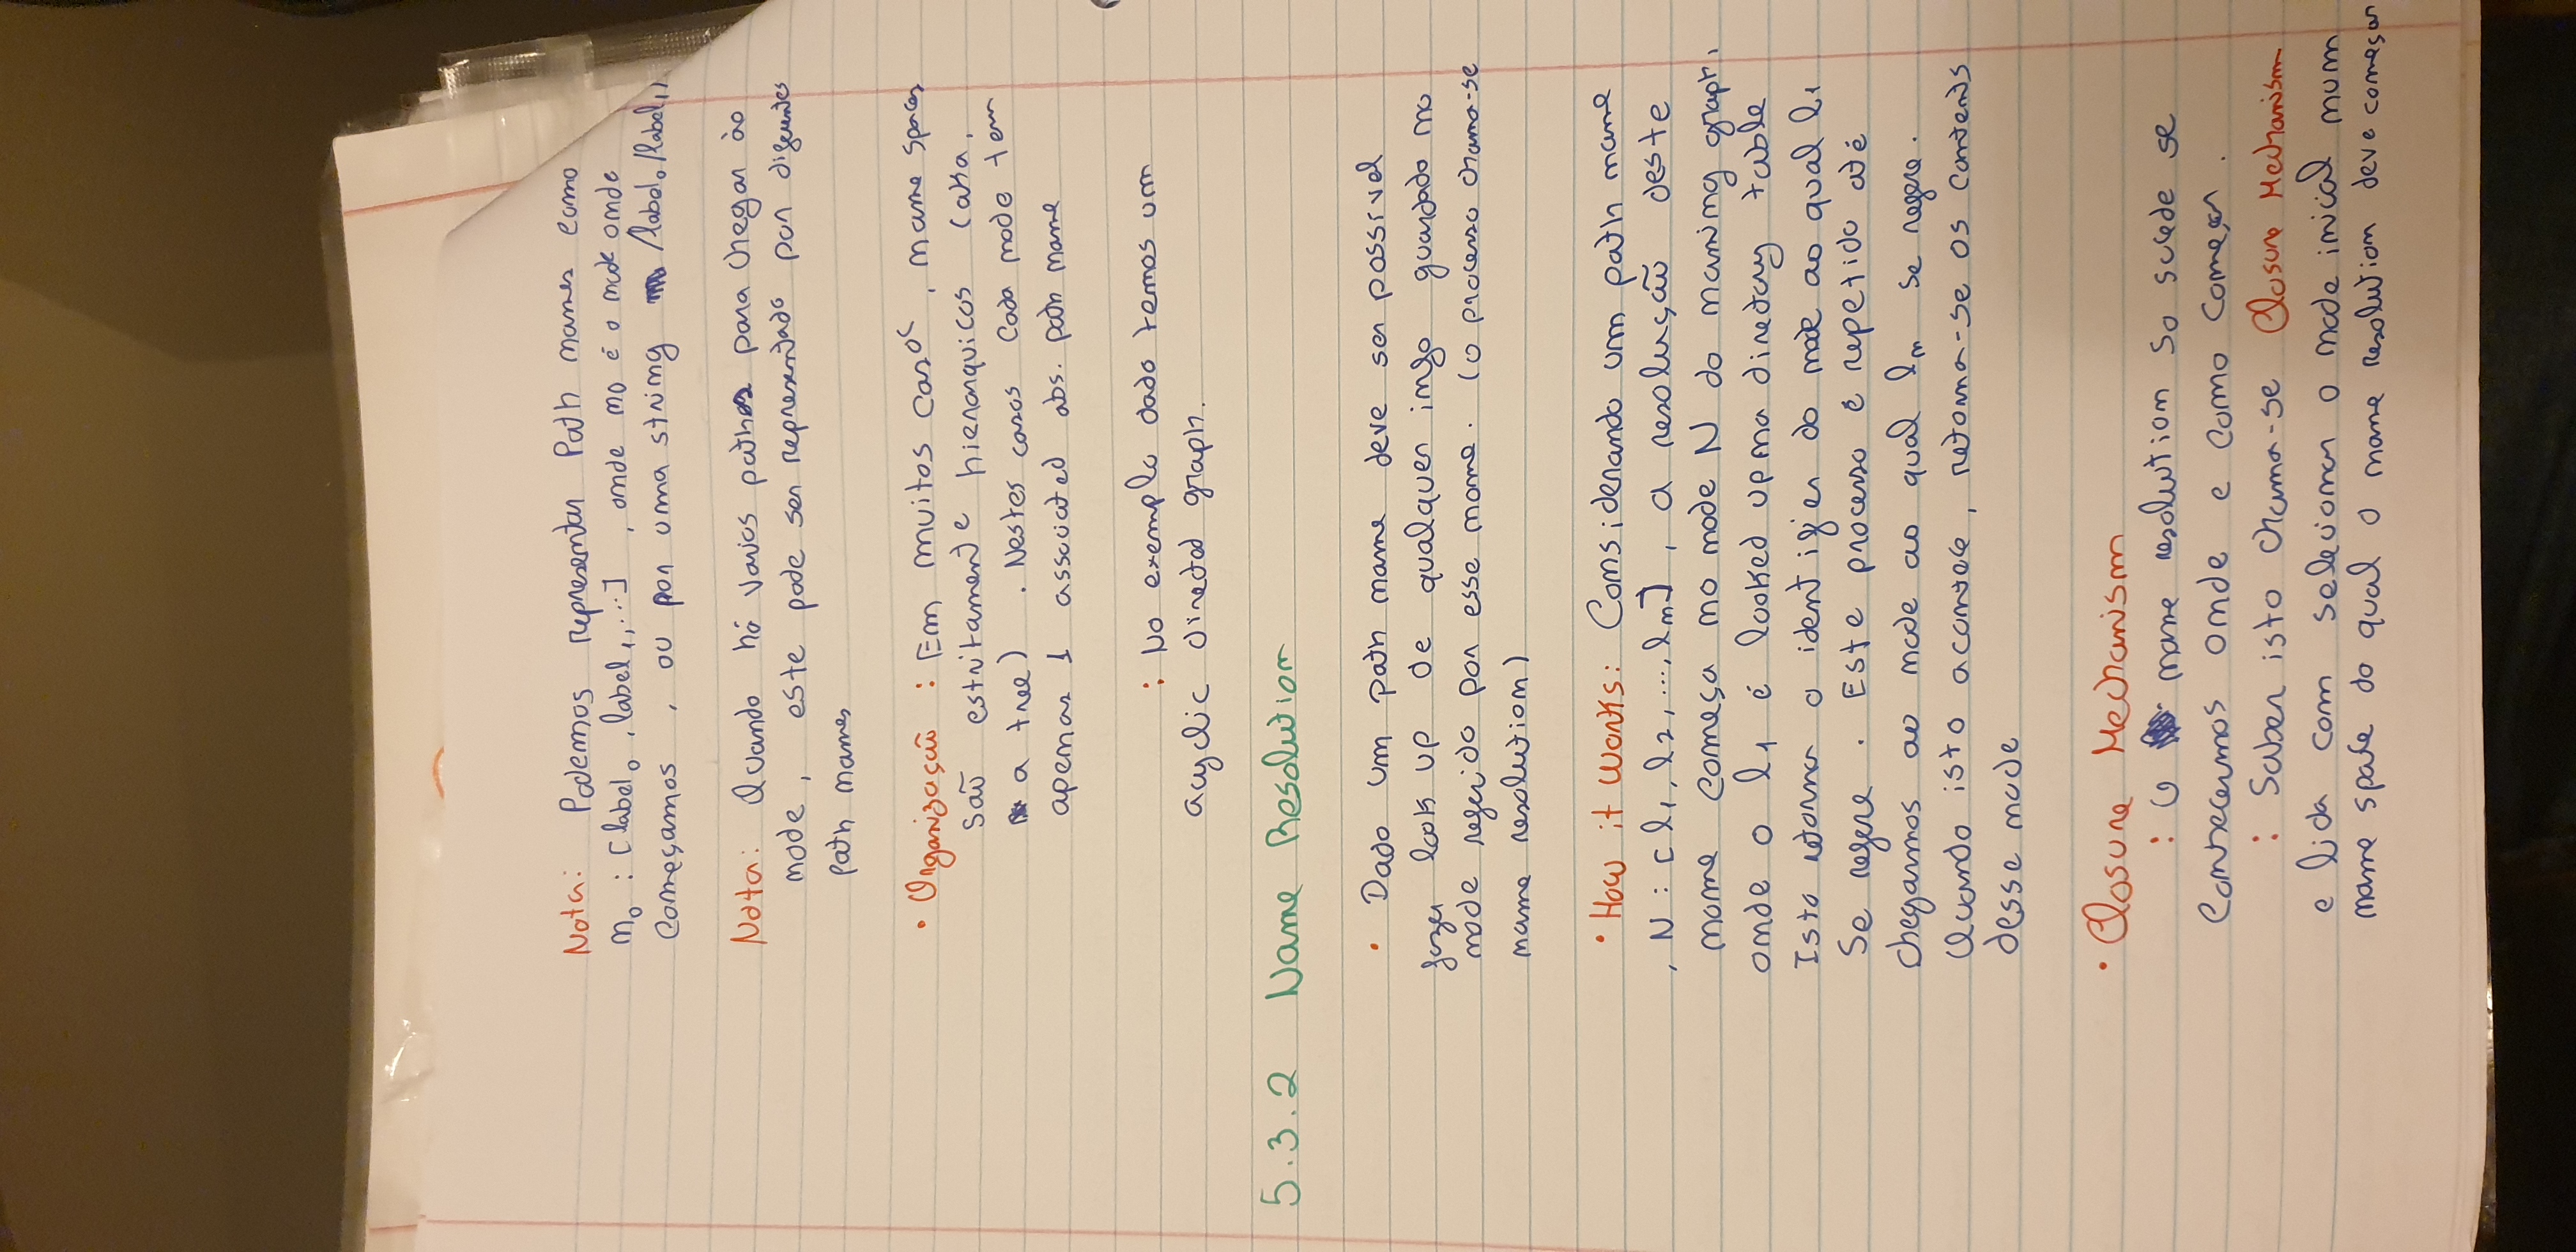 Nota: Podemos representar Path names como
n₀ : [label₀, label₁, ...] , onde n0 é o node onde
começamos , ou por uma string /label₀/label₁,
Nota: Quando há varios paths para chegar ao
node , este pode ser representado por diferentes
path names
• Organização : Em muitos casos , name spaces
são estritamente hierarquicos (aka,
a tree) . Nestes casos cada node tem
apenas 1 associated abs. path name
: No exemplo dado temos um
acyclic directed graph.
5.3.2 Name Resolution
• Dado um path name deve ser possível
fazer look up de qualquer info guardado no
node referido por esse nome. (o processo chama-se
name resolution)
• How it Works: Considerando um path name
, N : [l₁, l₂, ..., lₙ] , a resolução deste
nome começa no node N do naming graph,
onde o l₁ é looked up na directory table
Isto retorna o identifier do node ao qual l₁
se refere . Este processo é repetido até
chegarmos ao node ao qual lₙ se refere.
Quando isto acontece , retorna-se os contents
desse node
• Closure Mechanism
: O name resolution so sucede se
conhecermos onde e como começar .
: Saber isto chama-se Closure Mechanism
e lida com selecionar o node inicial num
name space do qual o name resolution deve começar